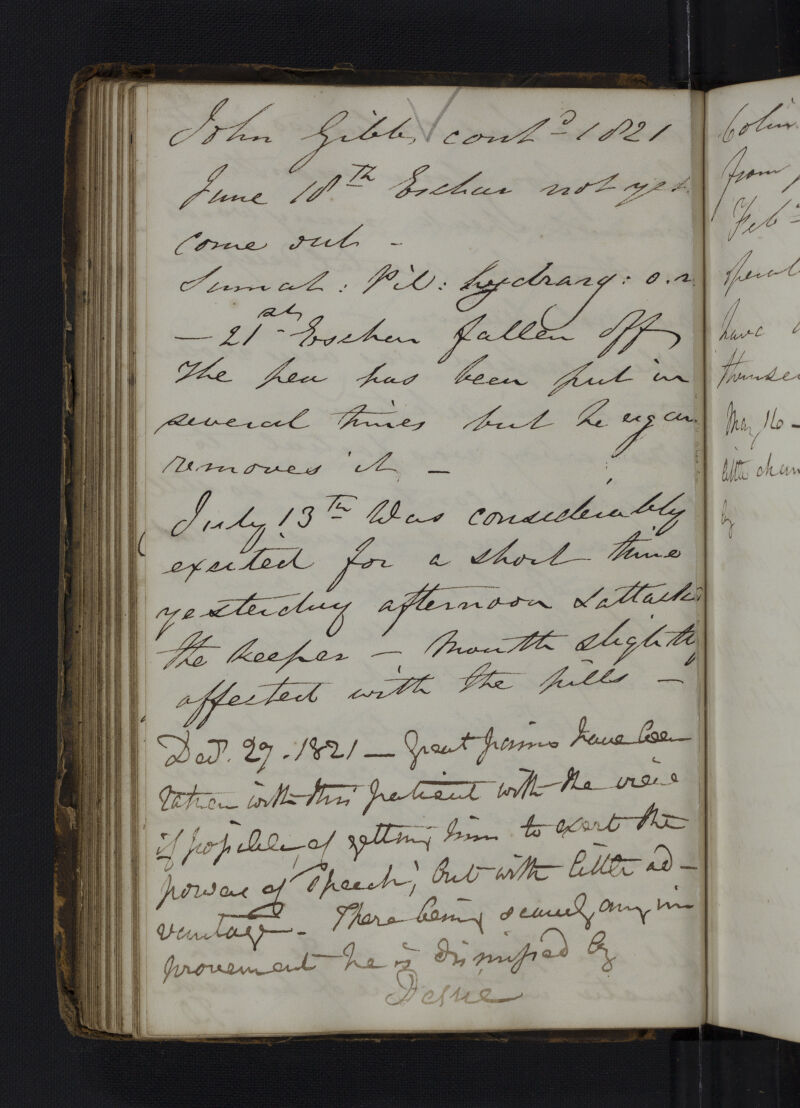 John Gibb, contd 1821
June 18th Eschar not yet
come out -
Sumat : Pil: hydrarg: o.n
- 21st Eschar fallen off
The pea has been put in
several times but he again
removes it -
July 13th Was considerably
excited for a short time
yesterday afternoon & attacked
the keeper - Mouth slightly
affected with the pills -
Decr. 29. 1821 - Great pains have been
taken with this patient with the view
if possible, of getting him to exert the
power of speech, but with little ad-
vantage. There being scarcely any im
provement he is dismissed by
Desire
Colin
from
Feb
operat
have
themse
May 16 -
little chan
by